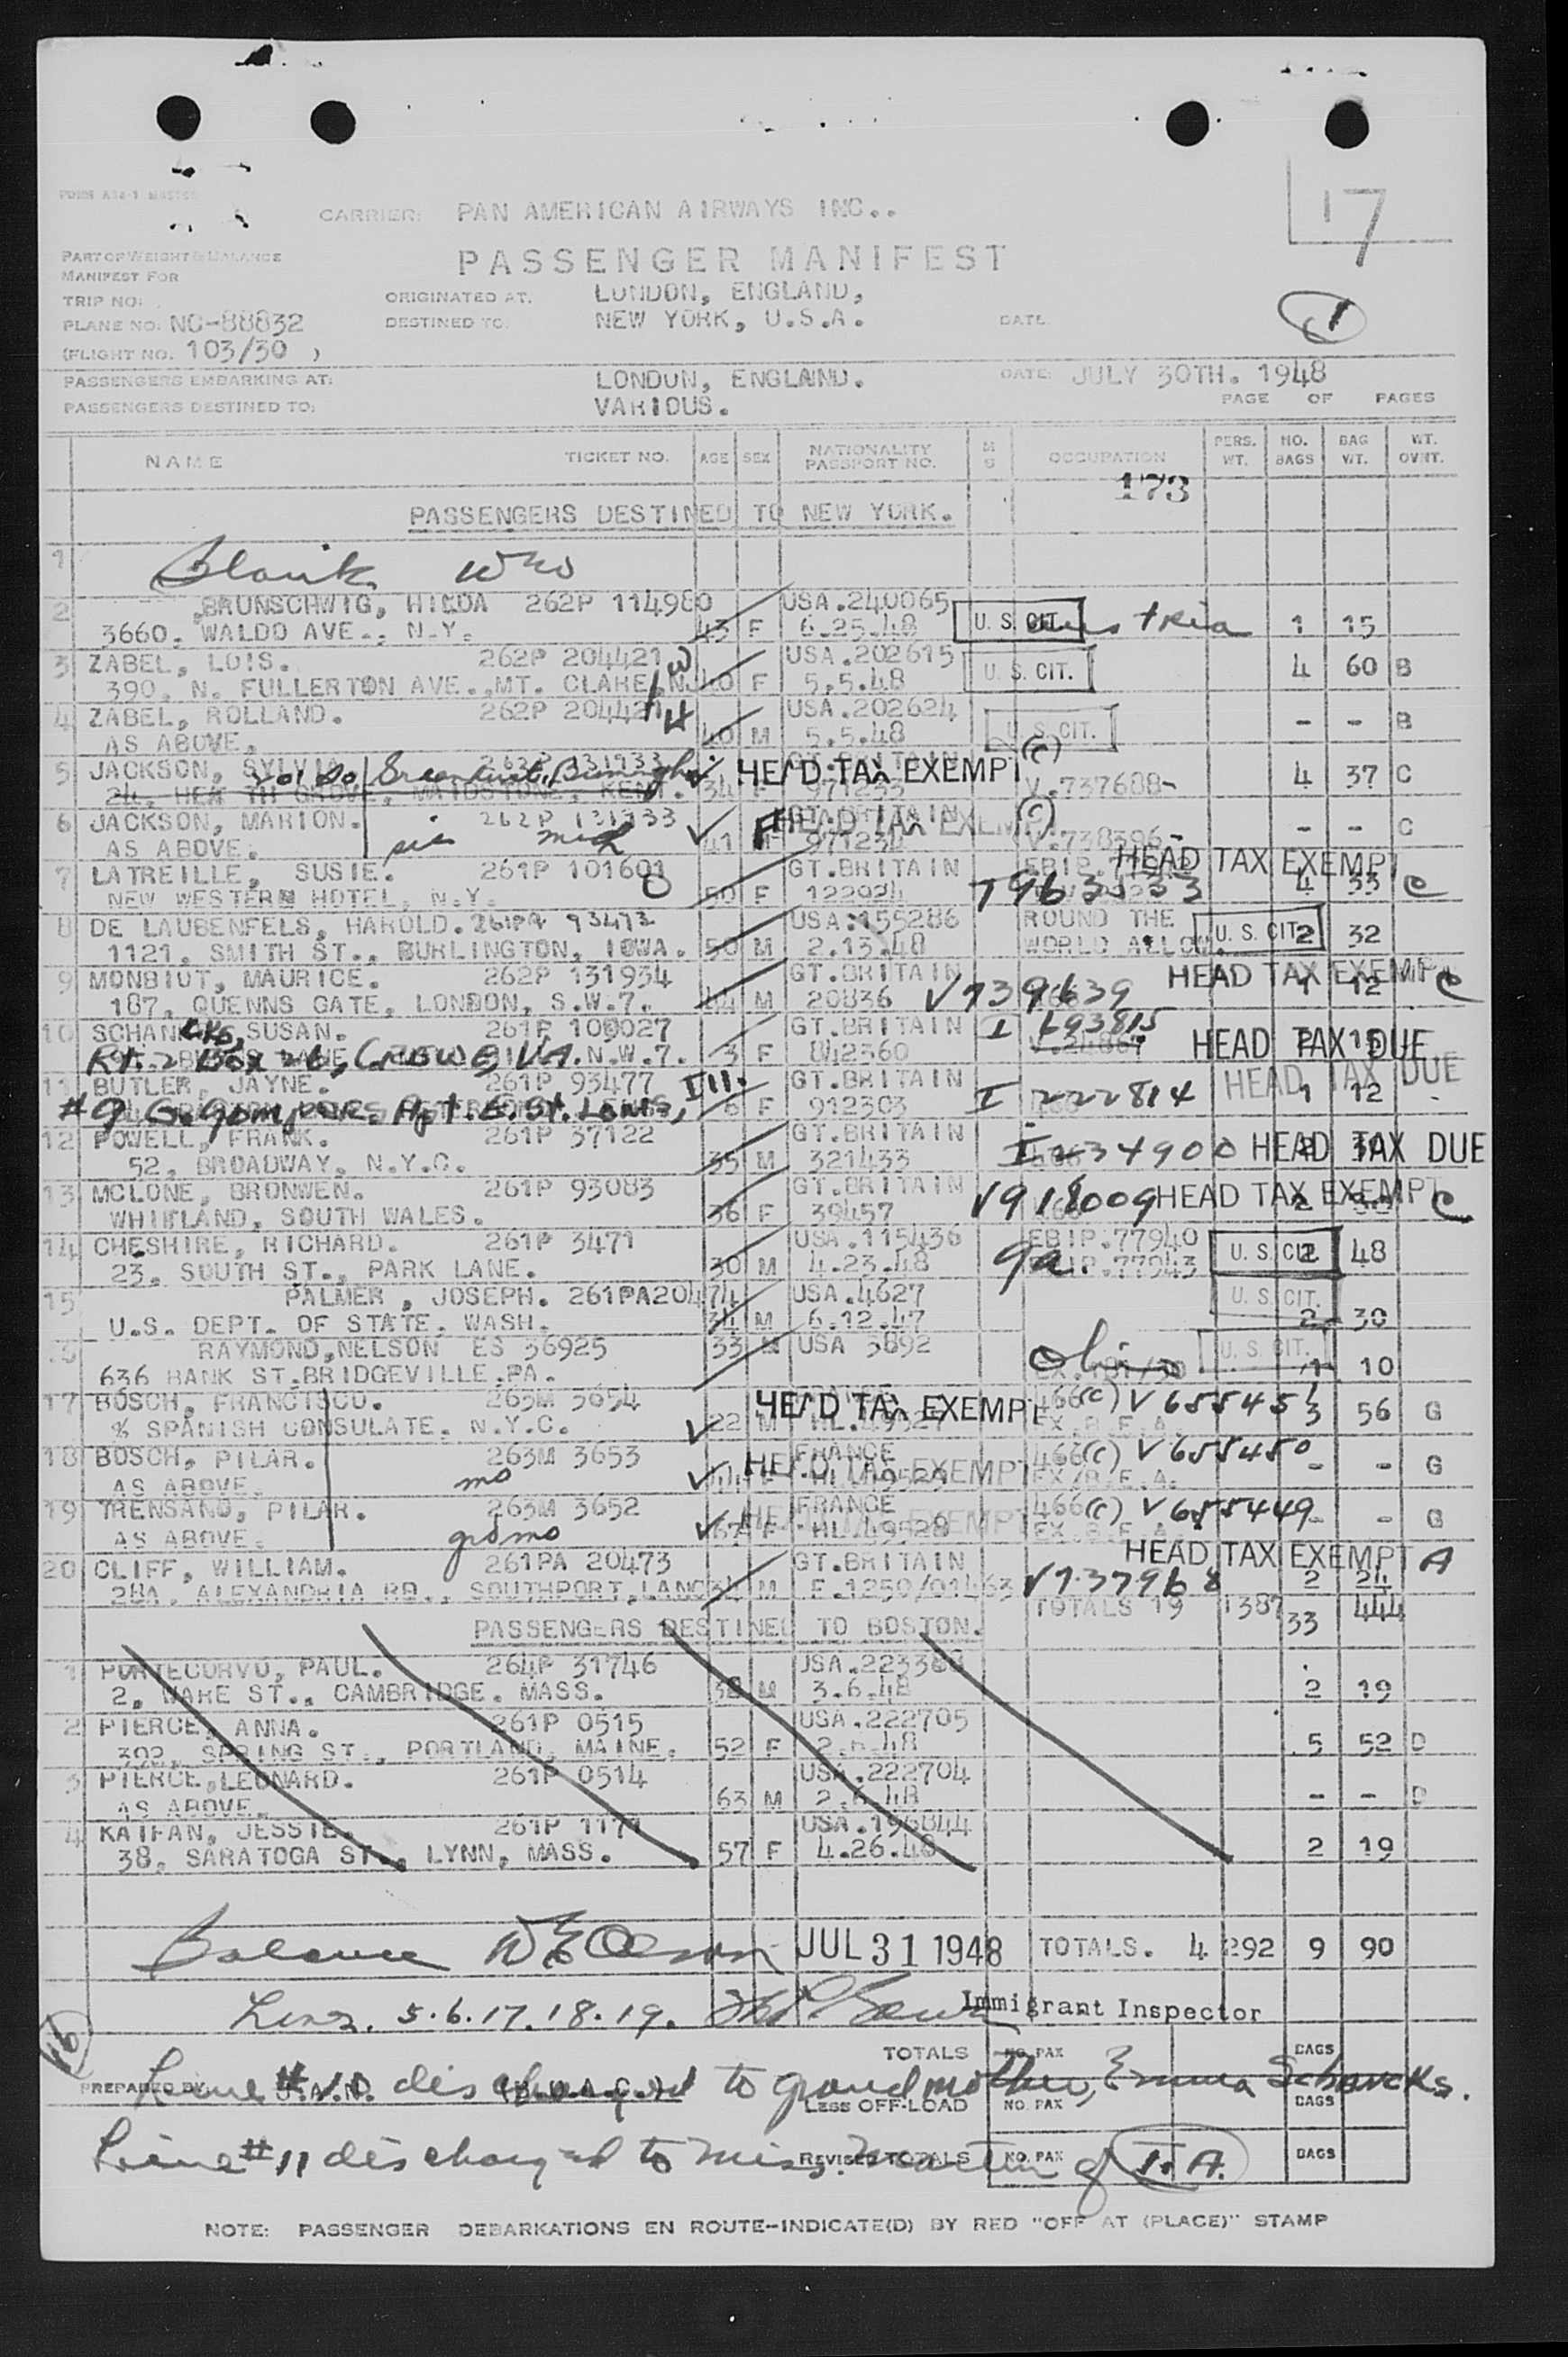 FORM A34-1 MASTER
17
CARRIER: PAN AMERICAN AIRWAYS INC..
PASSENGER MANIFEST
PART OF WEIGHT & BALANCE
MANIFEST FOR
TRIP NO:
PLANE NO: NC-88832
(FLIGHT NO. 103/30 )
ORIGINATED AT. LONDON, ENGLAND,
DESTINED TO: NEW YORK, U.S.A. DATE
1
PASSENGERS EMBARKING AT: LONDON, ENGLAND. DATE: JULY 30TH. 1948
PASSENGERS DESTINED TO: VARIOUS. PAGE OF PAGES
NAME TICKET NO. AGE SEX NATIONALITY PASSPORT NO. M S OCCUPATION PERS. WT. NO. BAGS BAG WT. WT. OVNT.
173
PASSENGERS DESTINED TO NEW YORK.
1 Blank
2 BRUNSCHWIG, HILDA 262P 114980 USA.240065
3660. WALDO AVE., N.Y. 43 F 6.25.48 U. S. CIT. 1 15
3 ZABEL, LOIS. 262P 204421 USA.202615
390. N. FULLERTON AVE., MT. CLARE, NJ 40 F 5.5.48 U. S. CIT. 4 60 B
4 ZABEL, ROLLAND. 262P 204421 USA.202624
AS ABOVE. 40 M 5.5.48 U. S. CIT. - - B
5 JACKSON, SYLVIA 262P 131933 GT.BRITAIN HEAD TAX EXEMPT (c)
24. HEATH GROVE, MAIDSTONE, KENT. 34 F 971233 V.737688- 4 37 C
6 JACKSON, MARION. 262P 131933 GT.BRITAIN HEAD TAX EXEMPT (c)
AS ABOVE. sis 41 F 971234 V.738396- - - C
7 LATREILLE, SUSIE. 261P 101601 GT.BRITAIN HEAD TAX EXEMPT
NEW WESTERN HOTEL, N.Y. 50 F 122924 4 33 C
8 DE LAUBENFELS, HAROLD. 261PA 93473 USA:155286 ROUND THE
1121. SMITH ST., BURLINGTON, IOWA. 50 M 2.13.48 WORLD ALLOW. U. S. CIT. 2 32
9 MONBIOT, MAURICE. 262P 131934 GT.BRITAIN HEAD TAX EXEMPT
187, QUENNS GATE, LONDON, S.W.7. 44 M 20836 V739639 1 12 C
10 SCHANCKS, SUSAN. 261P 100027 GT.BRITAIN I 693815
Rt. 2 Box 26, CREWE, VA. N.W.7. 3 F 842360 HEAD TAX DUE
11 BUTLER, JAYNE. 261P 93477 Ill. GT.BRITAIN HEAD TAX DUE
E. St. Louis, 6 F 912303 I 222814 1 12
12 POWELL, FRANK. 261P 37122 GT.BRITAIN
52, BROADWAY, N.Y.C. 35 M 321433 I 234900 HEAD TAX DUE
13 MCLONE, BRONWEN. 261P 93083 GT.BRITAIN
WHITLAND, SOUTH WALES. 36 F 39457 V918009 HEAD TAX EXEMPT C
14 CHESHIRE, RICHARD. 261P 3471 USA.115436 EBIP.77940
23. SOUTH ST., PARK LANE. 30 M 4.23.48 EBIP.77943 U. S. CIT. 2 48
15 PALMER, JOSEPH. 261PA20474 USA.4627 U. S. CIT.
U.S. DEPT. OF STATE. WASH. 34 M 6.12.47 2 30
16 RAYMOND,NELSON ES 36925 33 M USA 3892 U. S. CIT.
636 BANK ST.BRIDGEVILLE.PA. 1 10
17 BOSCH, FRANCISCO. 263M 3654 HEAD TAX EXEMPT 466(c) V 655451
% SPANISH CONSULATE. N.Y.C. 22 M 3 56 G
18 BOSCH, PILAR. 263M 3653 FRANCE 466(c) V 655450
AS ABOVE. mo 44 F HL.49529 HEAD TAX EXEMPT EX/B.E.A. - - G
19 TRENSAND, PILAR. 263M 3652 FRANCE 466(c) V 655449
AS ABOVE. gromo 67 F HL.49528 HEAD TAX EXEMPT EX.B.E.A. - - G
20 CLIFF, WILLIAM. 261PA 20473 GT.BRITAIN HEAD TAX EXEMPT A
28A, ALEXANDRIA RD., SOUTHPORT, LANC 34 M F.1250/01463 V737968 2 24
TOTALS 19 1387 33 444
PASSENGERS DESTINED TO BOSTON.
1 PONTECORVO, PAUL. 264P 31746 USA.223388
2, WARE ST., CAMBRIDGE. MASS. 38 M 3.6.48 2 19
2 PIERCE, ANNA. 261P 0515 USA.222705
392, SPRING ST., PORTLAND, MAINE. 52 F 2.6.48 5 52 D
3 PIERCE,LEONARD. 261P 0514 USA.222704
AS ABOVE. 63 M 2.6.48 - - D
4 KAIFAN, JESSIE. 261P 1171 USA.196844
38, SARATOGA ST., LYNN, MASS. 57 F 4.26.48 2 19
Balance JUL 31 1948 TOTALS. 4 292 9 90
Lines. 5.6.17.18.19. Immigrant Inspector
16
TOTALS NO. PAX BAGS
PREPARED BY
Line # 10 discharged to grandmother, Emma Schancks.
LESS OFF-LOAD NO. PAX BAGS
Line # 11 discharged to Miss Martin of T. A.
REVISED TOTALS NO. PAX BAGS
NOTE: PASSENGER DEBARKATIONS EN ROUTE-INDICATE(D) BY RED "OFF AT (PLACE)" STAMP